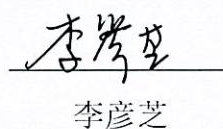 李彦芝
李彦芝